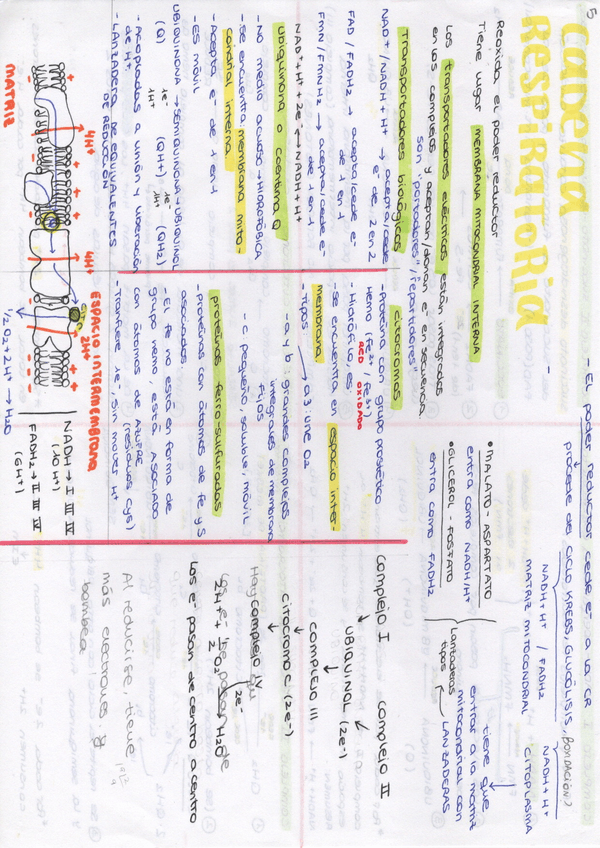 5
Cadena
Respiratoria
Reoxida el poder reductor
Tiene lugar MEMBRANA MITOCONDRIAL INTERNA
Los transportadores eléctricos están integrados
en los complejos y aceptan/donan e- en secuencia.
son "portadores"/"repartidores"
Transportadores biológicos
NAD+/NADH + H+ → acepta/cede
e- de 2 en 2
FAD/FADH2 → acepta/cede e-
de 1 en 1
FMN/FMNH2 → acepta/cede e-
de 1 en 1
NAD+ + H+ + 2e- ↔ NADH + H+
Ubiquinona o Coenzima Q
- No medio acuoso → HIDROFÓBICA
- Se encuentra, membrana mito-
condrial interna
- Acepta e- de 1 en 1
- ES MÓVIL
UBIQUINONA → SEMIQUINONA → UBIQUINOL
(Q) 1e- 1H+ (QH+) 1e- 1H+ (QH2)
- Acopladas a unión y liberación
de H+
- LANZADERA DE EQUIVALENTES
DE REDUCCIÓN
citocromos
- Proteína con grupo prostético
Hemo (Fe2+/Fe3+)
RED OXIDADO
- Hidrofílicas
- Se encuentra en espacio inter-
membrana
- Tipos → a3: une O2
- a y b: grandes complejos
integrales de membrana
Fijos
- c pequeño, soluble, móvil
proteínas ferro-sulfuradas
- proteínas con átomos de Fe y S
asociados
- El Fe no está en forma de
grupo hemo, está ASOCIADO
con átomos de AZUFRE
(residuos Cys)
- Tranfiere 1e-, sin mover H+
- EL poder reductor cede e- a la CR
procede del CICLO KREBS, GLUCÓLISIS,
NADH+H+ / FADH2
MATRIZ MITOCONDRIAL
NADH+H+
CITOPLASMA
tiene que
entrar a la matriz
mitocondrial con
LANZADERAS
Lanzaderas
tipos
• MALATO - ASPARTATO
entra como NADH/H+
• GLICEROL - FOSFATO
entra como FADH2
Complejo I
complejo II
UBIQUINOL (2e-)
COMPLEJO III
citocromo c (2e-)
Complejo IV
2e-
2H+ + 1/2 O2 → H2O
Los e- pasan de centro a centro
Al reducirse, tiene
más electrones y
bombea
4H+
4H+
2H+
MATRIZ
ESPACIO INTERMEMBRANA
1/2 O2 + 2H+ → H2O
NADH → I III IV
(10H+)
FADH2 → II III IV
(6H+)